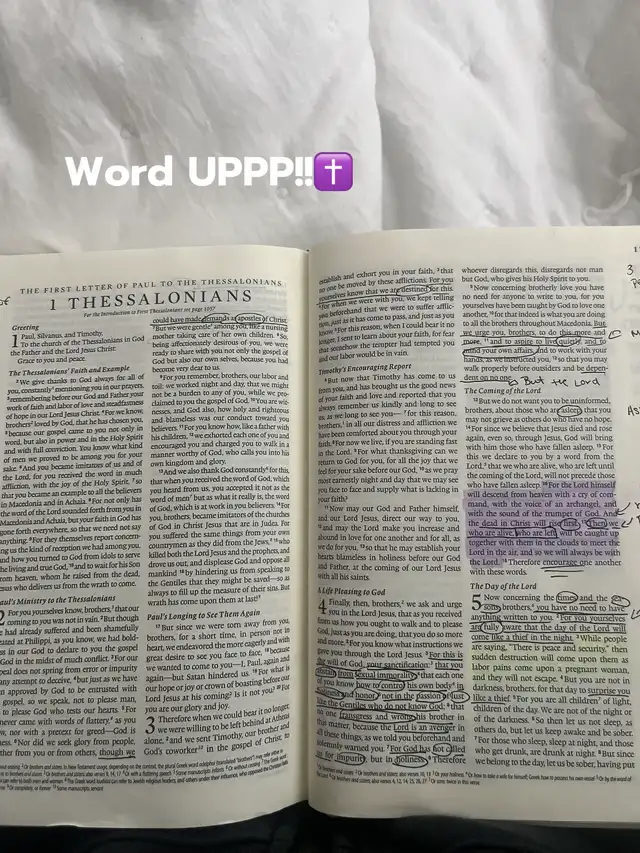 Word UPPP!!✝️
THE FIRST LETTER OF PAUL TO THE THESSALONIANS
1 THESSALONIANS
For the Introduction to First Thessalonians see page
Greeting
1 Paul, Silvanus, and Timothy,
To the church of the Thessalonians in God
the Father and the Lord Jesus Christ:
Grace to you and peace.
The Thessalonians' Faith and Example
²We give thanks to God always for all of
you, constantly mentioning you in our prayers,
³remembering before our God and Father your
work of faith and labor of love and steadfastness
of hope in our Lord Jesus Christ. ⁴For we know,
brothers loved by God, that he has chosen you,
⁵because our gospel came to you not only in
word, but also in power and in the Holy Spirit
and with full conviction. You know what kind
of men we proved to be among you for your
sake. ⁶And you became imitators of us and of
the Lord, for you received the word in much
affliction, with the joy of the Holy Spirit, ⁷so
that you became an example to all the believers
in Macedonia and in Achaia. ⁸For not only has
the word of the Lord sounded forth from you in
Macedonia and Achaia, but your faith in God has
gone forth everywhere, so that we need not say
anything. ⁹For they themselves report concern-
ing us the kind of reception we had among you,
and how you turned to God from idols to serve
the living and true God, ¹⁰and to wait for his Son
from heaven, whom he raised from the dead,
Jesus who delivers us from the wrath to come.
Paul's Ministry to the Thessalonians
2 For you yourselves know, brothers, that our
coming to you was not in vain. ²But though
we had already suffered and been shamefully
treated at Philippi, as you know, we had bold-
ness in our God to declare to you the gospel
of God in the midst of much conflict. ³For our
appeal does not spring from error or impurity
or any attempt to deceive, ⁴but just as we have
been approved by God to be entrusted with
the gospel, so we speak, not to please man,
but to please God who tests our hearts. ⁵For
we never came with words of flattery, as you
know, nor with a pretext for greed—God is
witness. ⁶Nor did we seek glory from people,
whether from you or from others, though we
could have made demands as apostles of Christ.
⁷But we were gentle among you, like a nursing
mother taking care of her own children. ⁸So,
being affectionately desirous of you, we were
ready to share with you not only the gospel of
God but also our own selves, because you had
become very dear to us.
⁹For you remember, brothers, our labor and
toil: we worked night and day, that we might
not be a burden to any of you, while we pro-
claimed to you the gospel of God. ¹⁰You are wit-
nesses, and God also, how holy and righteous
and blameless was our conduct toward you
believers. ¹¹For you know how, like a father with
his children, ¹²we exhorted each one of you and
encouraged you and charged you to walk in a
manner worthy of God, who calls you into his
own kingdom and glory.
¹³And we also thank God constantly for this,
that when you received the word of God, which
you heard from us, you accepted it not as the
word of men but as what it really is, the word
of God, which is at work in you believers. ¹⁴For
you, brothers, became imitators of the churches
of God in Christ Jesus that are in Judea. For
you suffered the same things from your own
countrymen as they did from the Jews, ¹⁵who
killed both the Lord Jesus and the prophets, and
drove us out, and displease God and oppose all
mankind ¹⁶by hindering us from speaking to
the Gentiles that they might be saved—so as
always to fill up the measure of their sins. But
wrath has come upon them at last!
Paul's Longing to See Them Again
¹⁷But since we were torn away from you,
brothers, for a short time, in person not in
heart, we endeavored the more eagerly and with
great desire to see you face to face, ¹⁸because
we wanted to come to you—I, Paul, again and
again—but Satan hindered us. ¹⁹For what is
our hope or joy or crown of boasting before our
Lord Jesus at his coming? Is it not you? ²⁰For
you are our glory and joy.
3 Therefore when we could bear it no longer,
we were willing to be left behind at Athens
alone, ²and we sent Timothy, our brother and
God's coworker in the gospel of Christ, to
establish and exhort you in your faith, ³that
no one be moved by these afflictions. For you
yourselves know that we are destined for this.
⁴For when we were with you, we kept telling
you beforehand that we were to suffer afflic-
tion, just as it has come to pass, and just as you
know. ⁵For this reason, when I could bear it no
longer, I sent to learn about your faith, for fear
that somehow the tempter had tempted you
and our labor would be in vain.
Timothy's Encouraging Report
⁶But now that Timothy has come to us
from you, and has brought us the good news
of your faith and love and reported that you
always remember us kindly and long to see
us, as we long to see you— ⁷for this reason,
brothers, in all our distress and affliction we
have been comforted about you through your
faith. ⁸For now we live, if you are standing fast
in the Lord. ⁹For what thanksgiving can we
return to God for you, for all the joy that we
feel for your sake before our God, ¹⁰as we pray
most earnestly night and day that we may see
you face to face and supply what is lacking in
your faith?
¹¹Now may our God and Father himself,
and our Lord Jesus, direct our way to you,
¹²and may the Lord make you increase and
abound in love for one another and for all, as
we do for you, ¹³so that he may establish your
hearts blameless in holiness before our God
and Father, at the coming of our Lord Jesus
with all his saints.
A Life Pleasing to God
4 Finally, then, brothers, we ask and urge
you in the Lord Jesus, that as you received
from us how you ought to walk and to please
God, just as you are doing, that you do so more
and more. ²For you know what instructions we
gave you through the Lord Jesus. ³For this is
the will of God, your sanctification: that you
abstain from sexual immorality; ⁴that each one
of you know how to control his own body in
holiness and honor, ⁵not in the passion of lust
like the Gentiles who do not know God; ⁶that no
one transgress and wrong his brother in
this matter, because the Lord is an avenger in
all these things, as we told you beforehand and
solemnly warned you. ⁷For God has not called
us for impurity, but in holiness. ⁸Therefore
whoever disregards this, disregards not man
but God, who gives his Holy Spirit to you.
⁹Now concerning brotherly love you have
no need for anyone to write to you, for you
yourselves have been taught by God to love one
another, ¹⁰for that indeed is what you are doing
to all the brothers throughout Macedonia. But
we urge you, brothers, to do this more and
more, ¹¹and to aspire to live quietly, and to
mind your own affairs, and to work with your
hands, as we instructed you, ¹²so that you may
walk properly before outsiders and be depen-
dent on no one.
But the Lord
The Coming of the Lord
¹³But we do not want you to be uninformed,
brothers, about those who are asleep, that you
may not grieve as others do who have no hope.
¹⁴For since we believe that Jesus died and rose
again, even so, through Jesus, God will bring
with him those who have fallen asleep. ¹⁵For
this we declare to you by a word from the
Lord, that we who are alive, who are left until
the coming of the Lord, will not precede those
who have fallen asleep. ¹⁶For the Lord himself
will descend from heaven with a cry of com-
mand, with the voice of an archangel, and
with the sound of the trumpet of God. And
the dead in Christ will rise first. ¹⁷Then we
who are alive, who are left, will be caught up
together with them in the clouds to meet the
Lord in the air, and so we will always be with
the Lord. ¹⁸Therefore encourage one another
with these words.
The Day of the Lord
5 Now concerning the times and the sea-
sons, brothers, you have no need to have
anything written to you. ²For you yourselves
are fully aware that the day of the Lord will
come like a thief in the night. ³While people
are saying, "There is peace and security," then
sudden destruction will come upon them as
labor pains come upon a pregnant woman,
and they will not escape. ⁴But you are not in
darkness, brothers, for that day to surprise you
like a thief. ⁵For you are all children of light,
children of the day. We are not of the night or
of the darkness. ⁶So then let us not sleep, as
others do, but let us keep awake and be sober.
⁷For those who sleep, sleep at night, and those
who get drunk, are drunk at night. ⁸But since
we belong to the day, let us be sober, having put